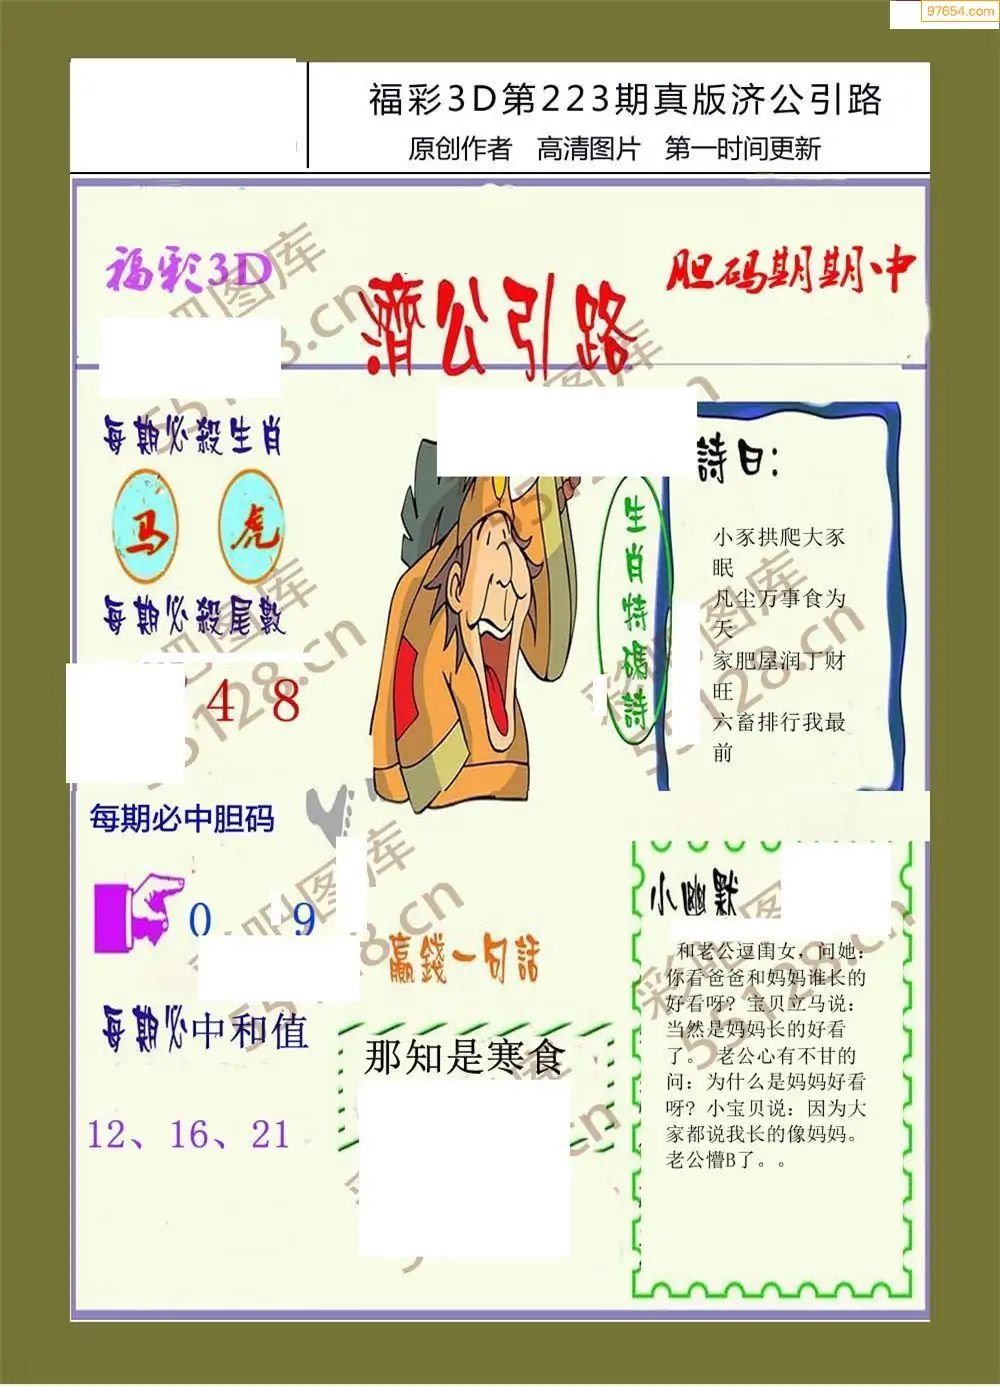 97654.com
福彩3D第223期真版济公引路
原创作者 高清图片 第一时间更新
福彩3D
胆码期期中
濟公引路
每期必殺生肖
马 虎
每期必殺尾數
4 8
每期必中胆码
0 9
每期必中和值
12、16、21
生肖特碼詩
詩曰:
小豕拱爬大豕
眠
凡尘万事食为
天
家肥屋润丁财
旺
六畜排行我最
前
赢錢一句話
那知是寒食
小幽默
和老公逗闺女，问她:
你看爸爸和妈妈谁长的
好看呀? 宝贝立马说:
当然是妈妈长的好看
了。 老公心有不甘的
问: 为什么是妈妈好看
呀? 小宝贝说: 因为大
家都说我长的像妈妈。
老公懵B了。。
彩吧图库
55128.cn